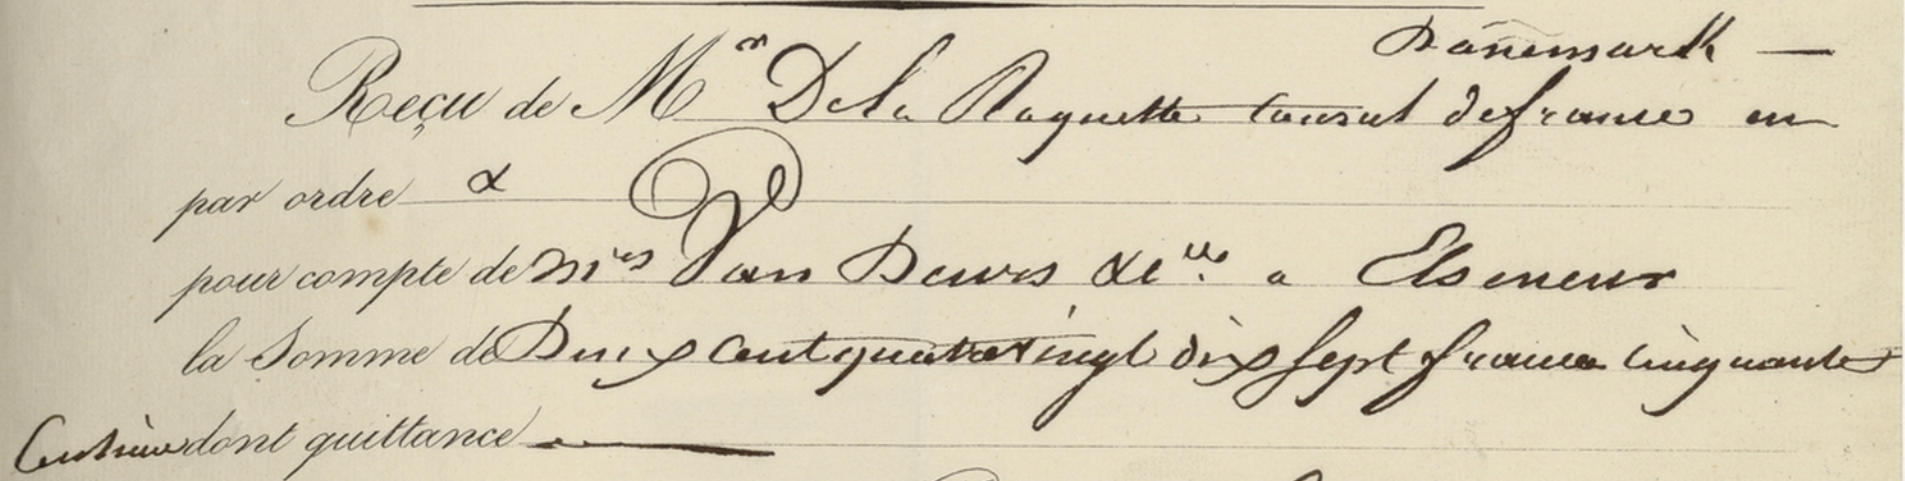 Danemark —
Reçu de Mr De la Roquette Consul de france en
par ordre &
pour compte de Mrs Van Deurs & Cie a Elseneur
la Somme de Deux Cent quatre vingt dix sept francs Cinquante
Centimes dont quittance